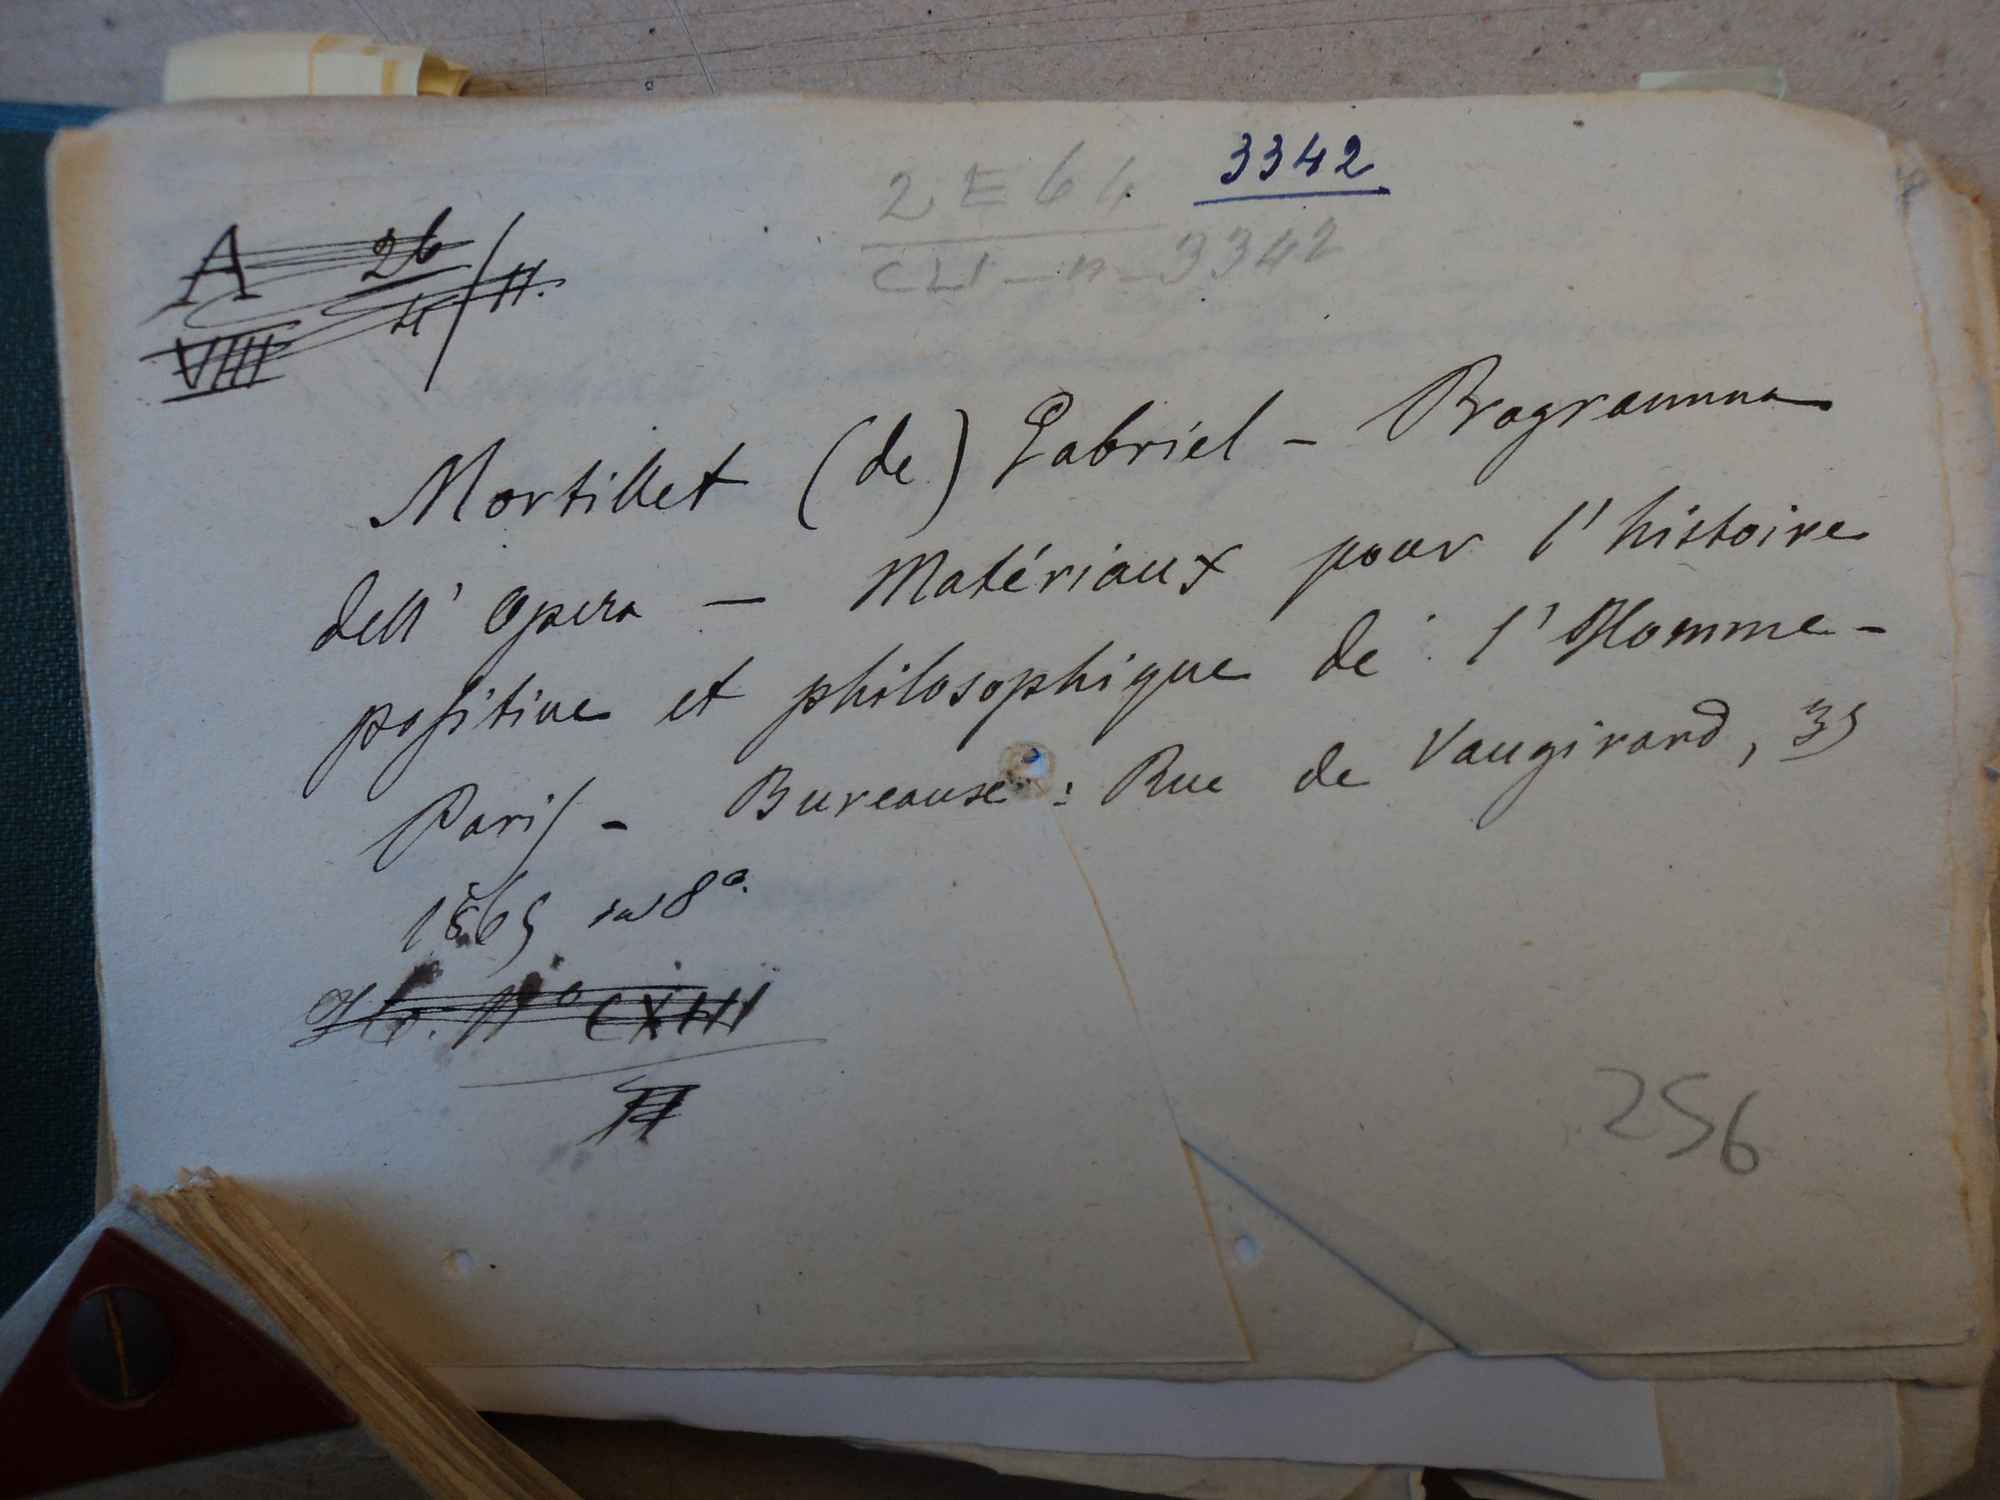 3342
2 E 64
3342
A 26
VIII
Mortillet (de) Gabriel - Programma
dell' Opera - Matériaux pour l'histoire
positive et philosophique de l'Homme -
Paris - Bureause : Rue de Vaugirard, 35
1865 in 8º.
Nº CXIII
256